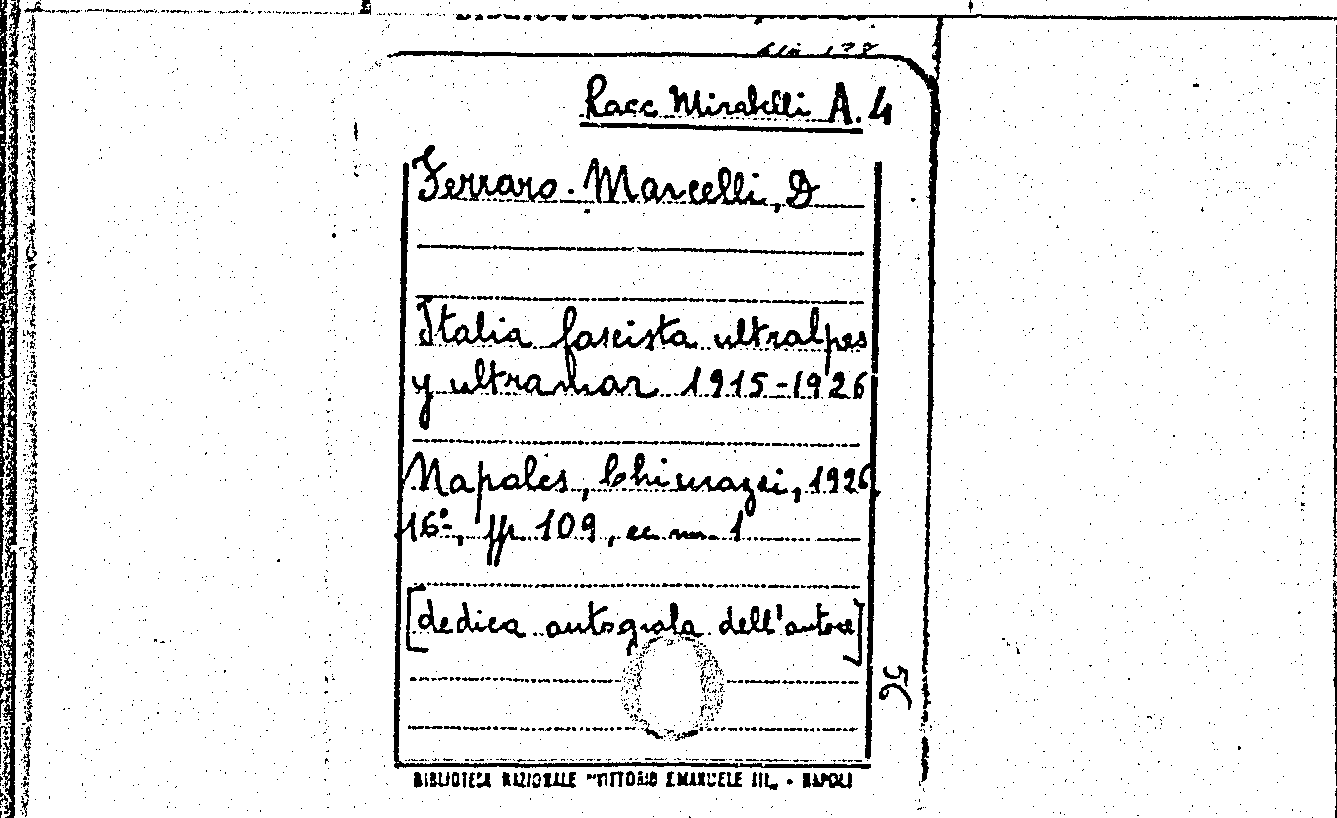 Racc Mirabelli A. 4
Ferraro-Marcelli, D
Italia fascista ultralpes
y ultramar 1915-1926
Napoles, Chiurazzi, 1926,
16º, pp. 109, cc. nn. 1
[dedica autografa dell'autore]
56
BIBLIOTECA NAZIONALE "VITTORIO EMANUELE III" - NAPOLI